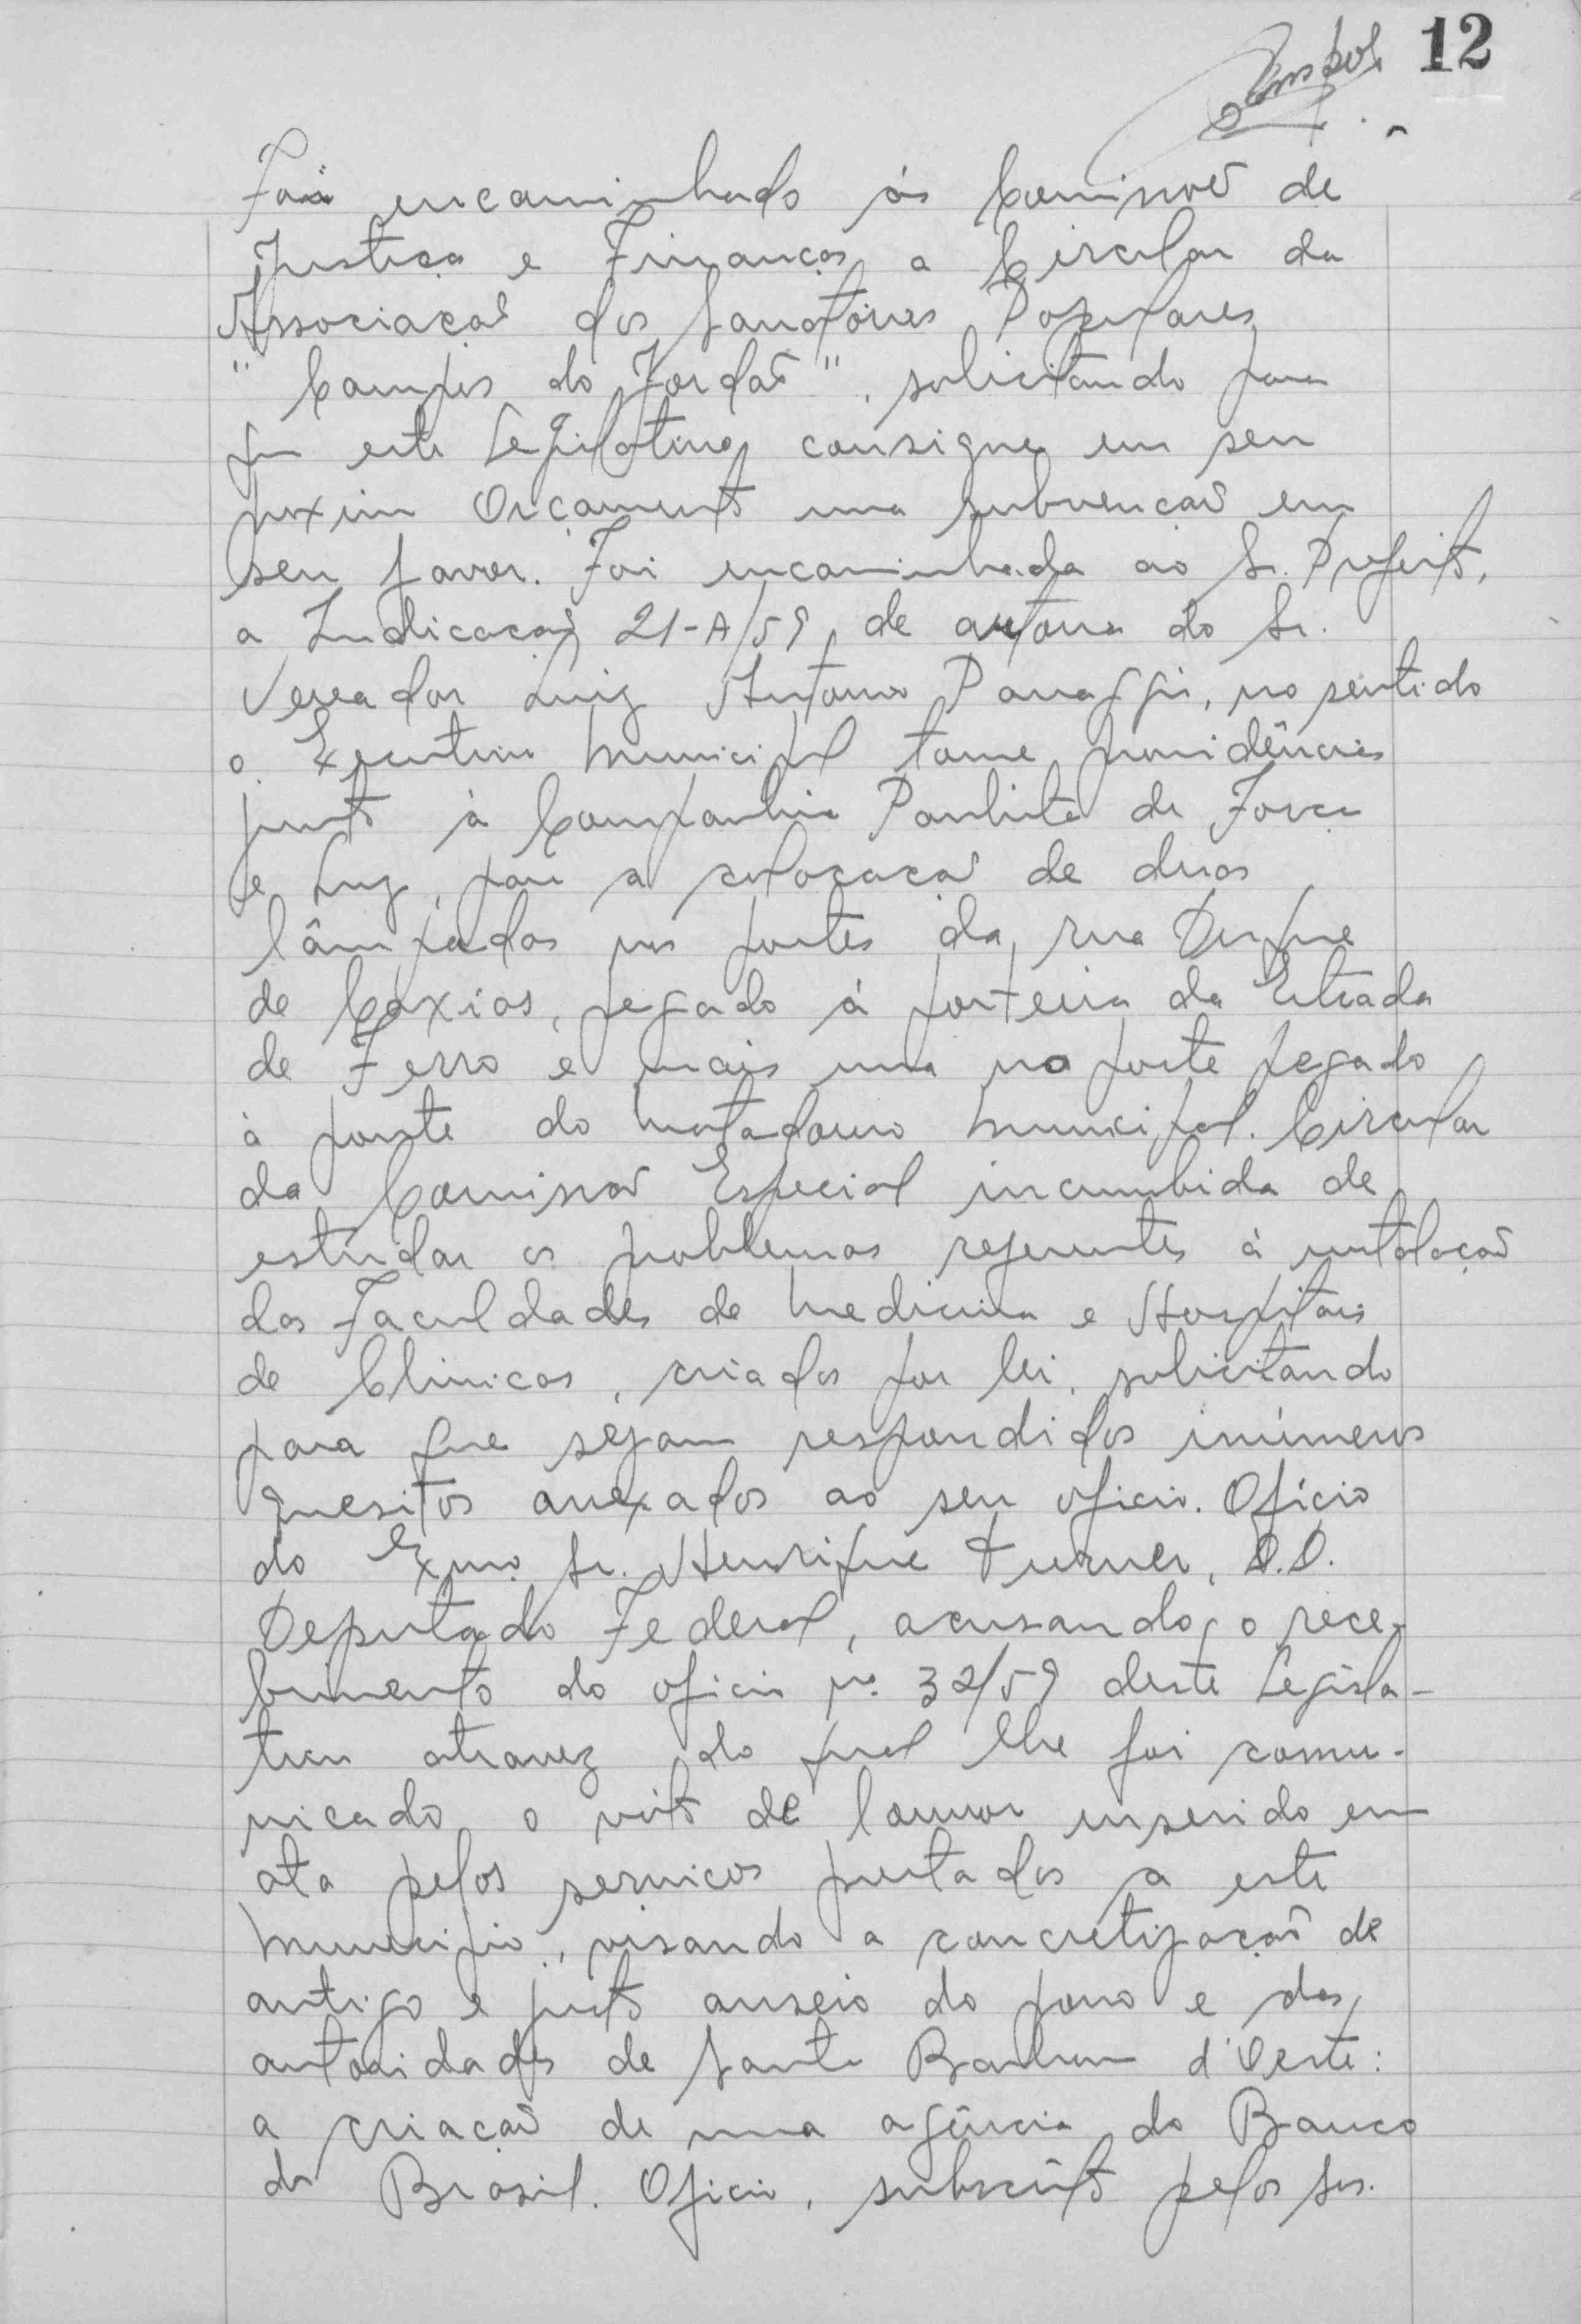 12
Foi encaminhado às Comissões de
Justiça e Finanças a Circular da
Associação dos Sanatórios Populares
"Campos do Jordão", solicitando para
que este Legislativo consigne em seu
proximo Orçamento uma subvenção em
seu favor. Foi encaminhada ao Sr. Prefeito,
a Indicação 21-A/59, de autoria do Sr.
Vereador Luiz Antonio Panaggio, no sentido
o Executivo Municipal tome providências
junto à Companhia Paulista de Força
e Luz, para a colocação de duas
lâmpadas nos postes da rua Duque
de Caxias, pegado à porteira da Estrada
de Ferro e mais uma no poste pegado
à ponte do Matadouro Municipal. Circular
da Comissão Especial incumbida de
estudar os problemas referentes à instalação
das Faculdades de Medicina e Hospitais
de Clinicas, criados por lei, solicitando
para que sejam respondidos inúmeros
quesitos anexados ao seu oficio. Ofício
do Exmo Sr. Henrique Turner, D.D.
Deputado Federal, acusando o rece-
bimento do oficio nº 32/59 deste Legisla-
tivo atravez do qual lhe foi comu-
nicado o voto de louvor inserido em
ata pelos serviços prestados a este
Municipio, visando a concretização de
antigo e justo anseio do povo e das
autoridades de Santa Barbara d'Oeste:
a criação de uma agência do Banco
do Brasil. Oficio, subscrito pelos Srs.